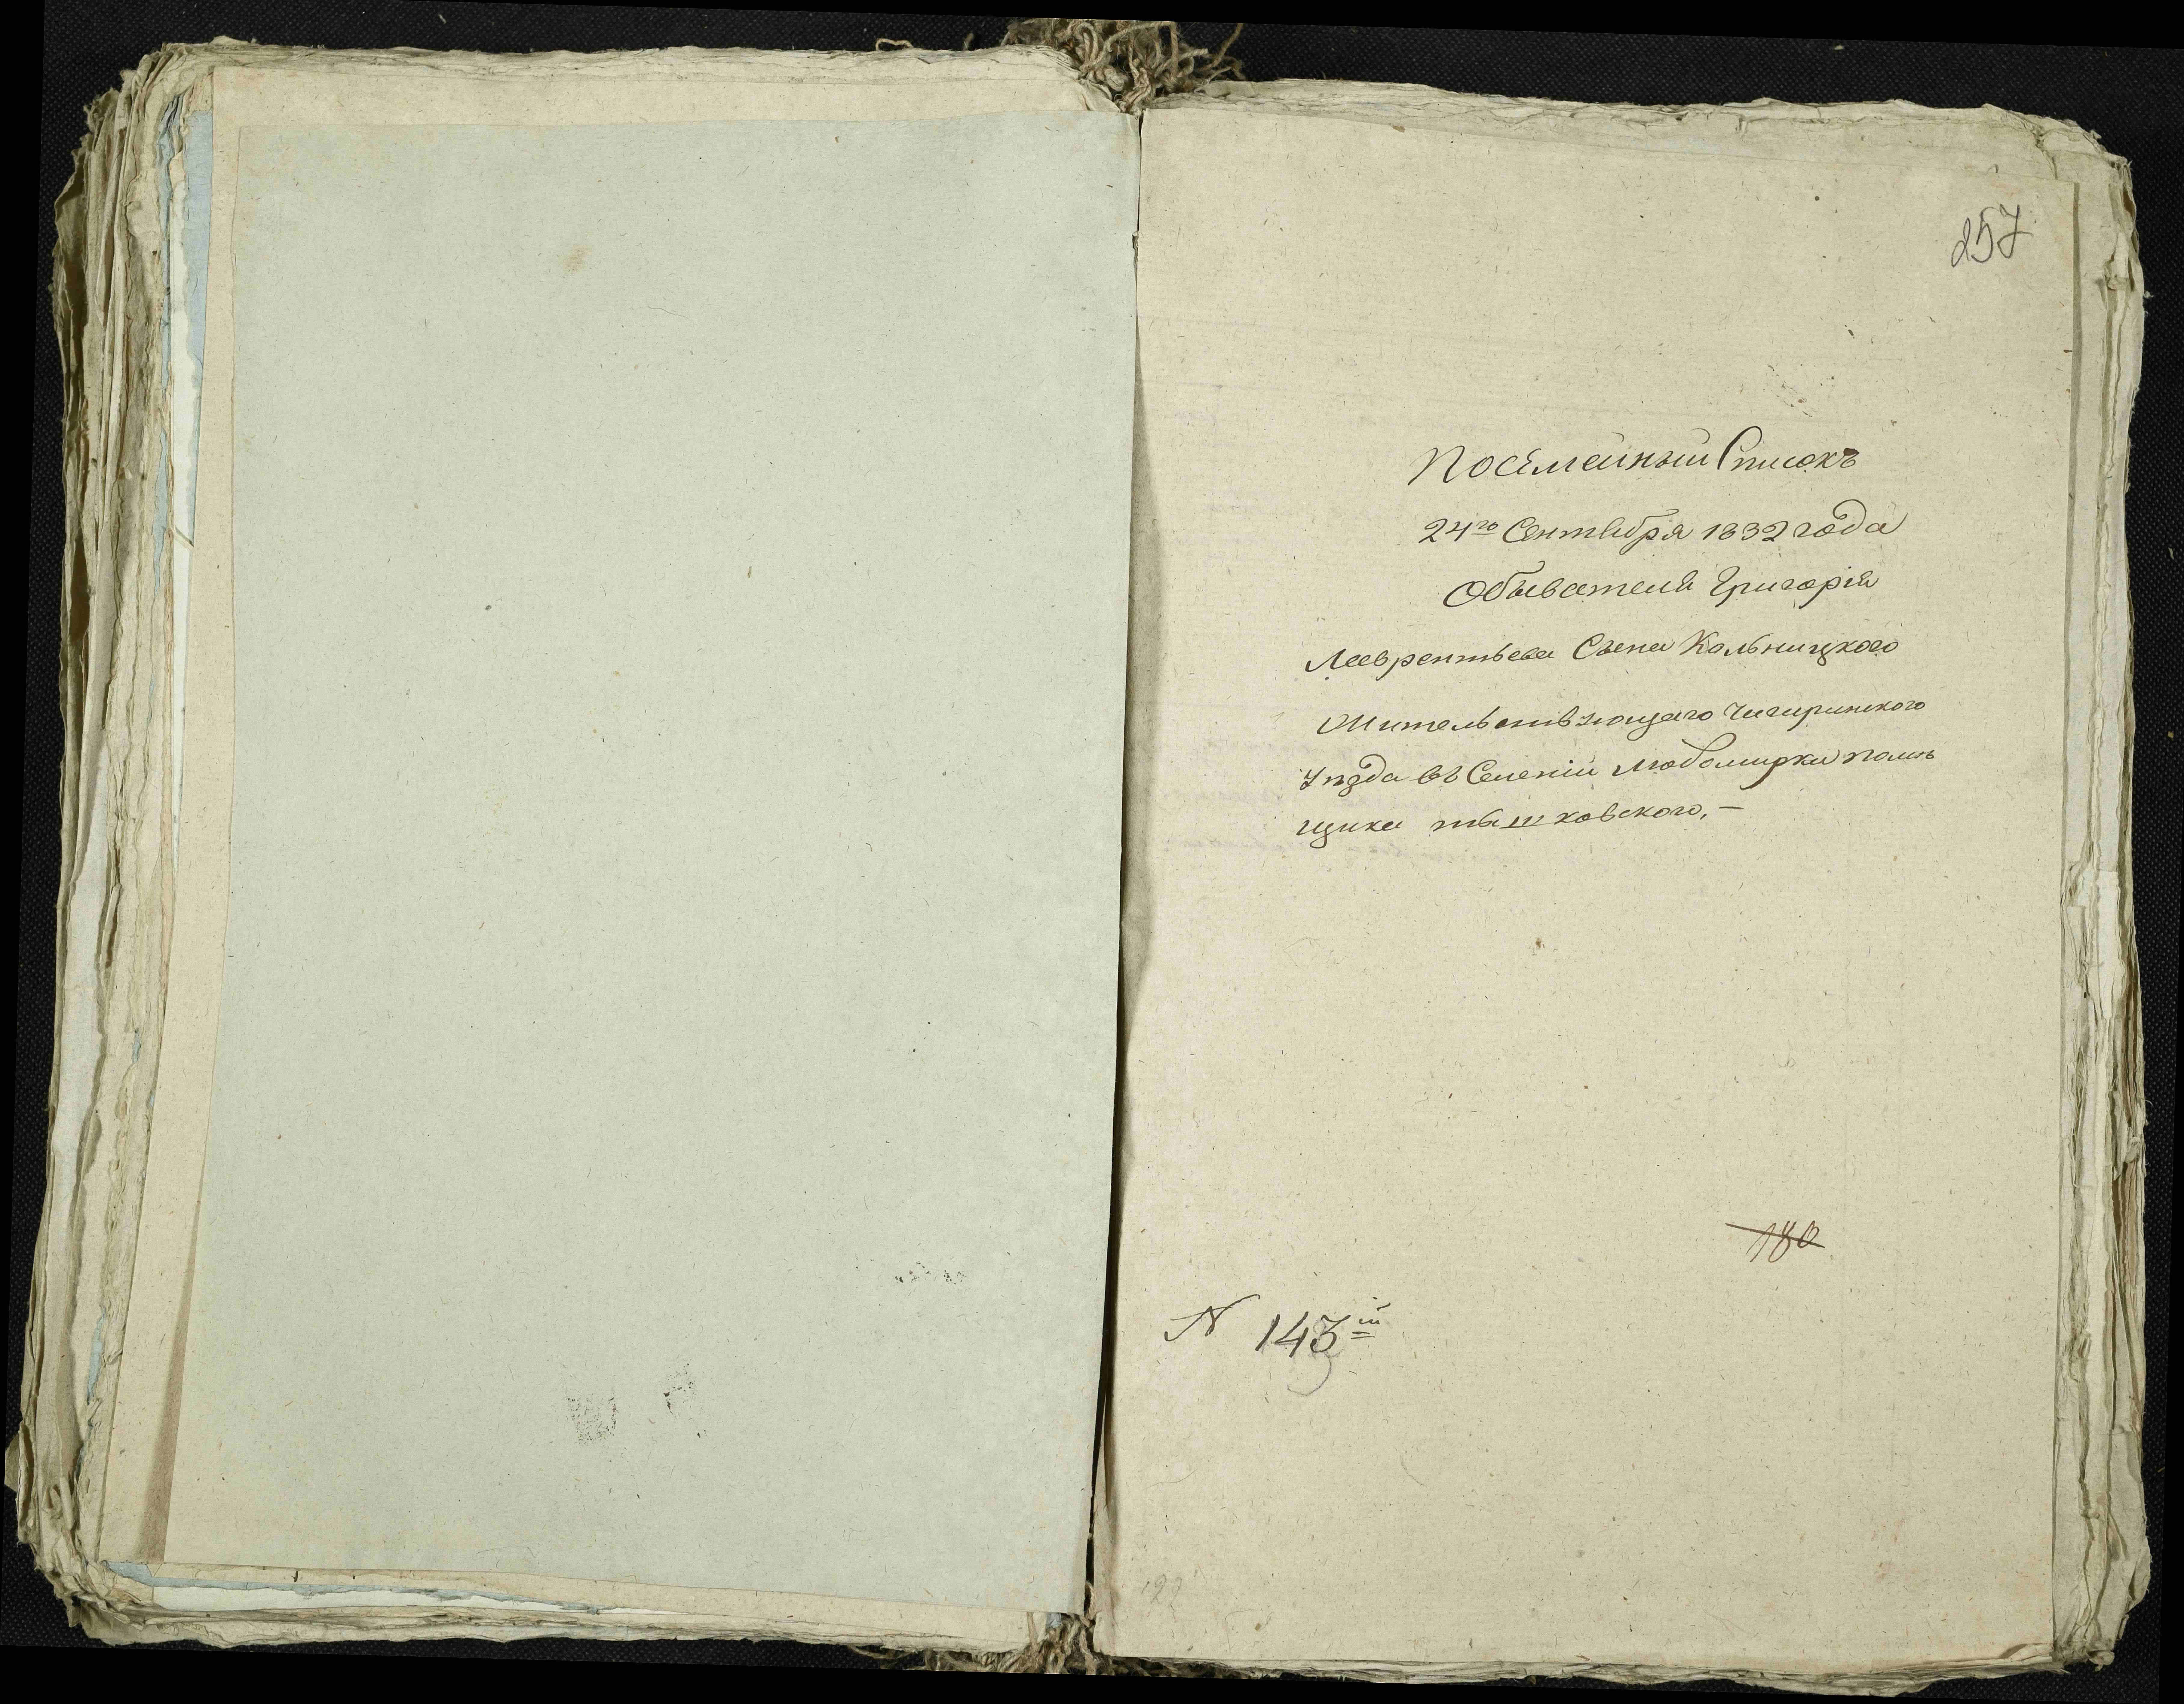 257
Посемейный Списокъ
24го Сентября 1832 года
Обывателя Григорія
Лаврентьева Сына Кальницкого
Жительствующаго Чигиринского
Уѣзда въ Селеніи Любомирки помѣ
щика тышковского,—
180
N 143й